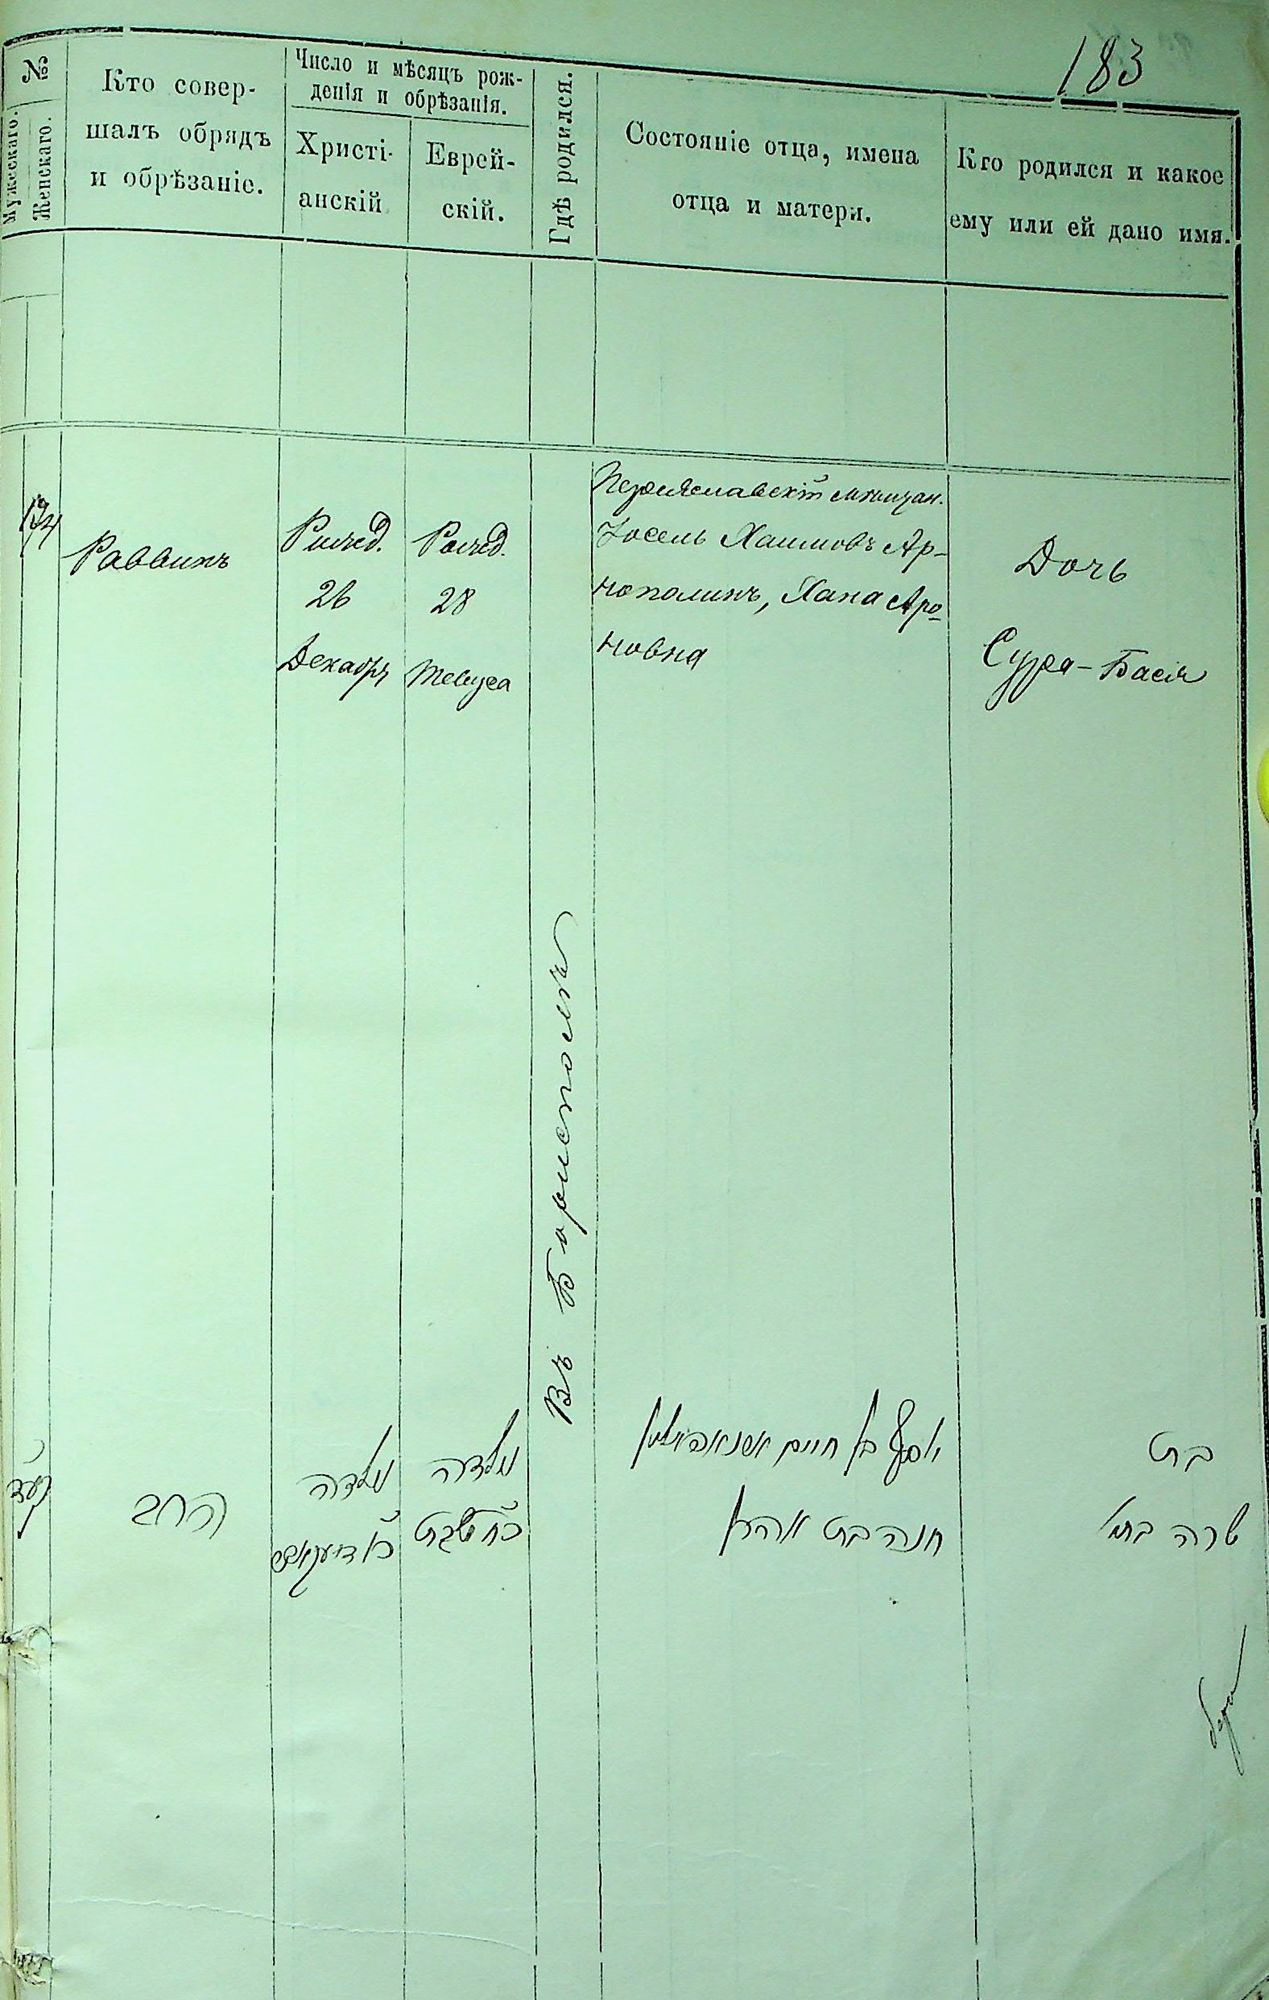 183
№
Мужескаго.
Женскаго.
Кто совер-
шалъ обрядъ
и обрѣзаніе.
Число и мѣсяцъ рож-
денія и обрѣзанія.
Христі-
анскій
Еврей-
скій.
Гдѣ родился.
Состояніе отца, имена
отца и матери.
Кто родился и какое
ему или ей дано имя.
Раввинъ
Рожд.
26
Декабря
Рожд.
28
Въ Борисполѣ
Переяславскій мѣщан.
Іосель Хаимовъ Ар-
нополинъ, Хана Аро-
новна
Дочь
Сура-Бася
קעד
הרב
נולדה
נולדה
כ״ח טבת
בן חיים
חנה בת אהרן
בת
שרה